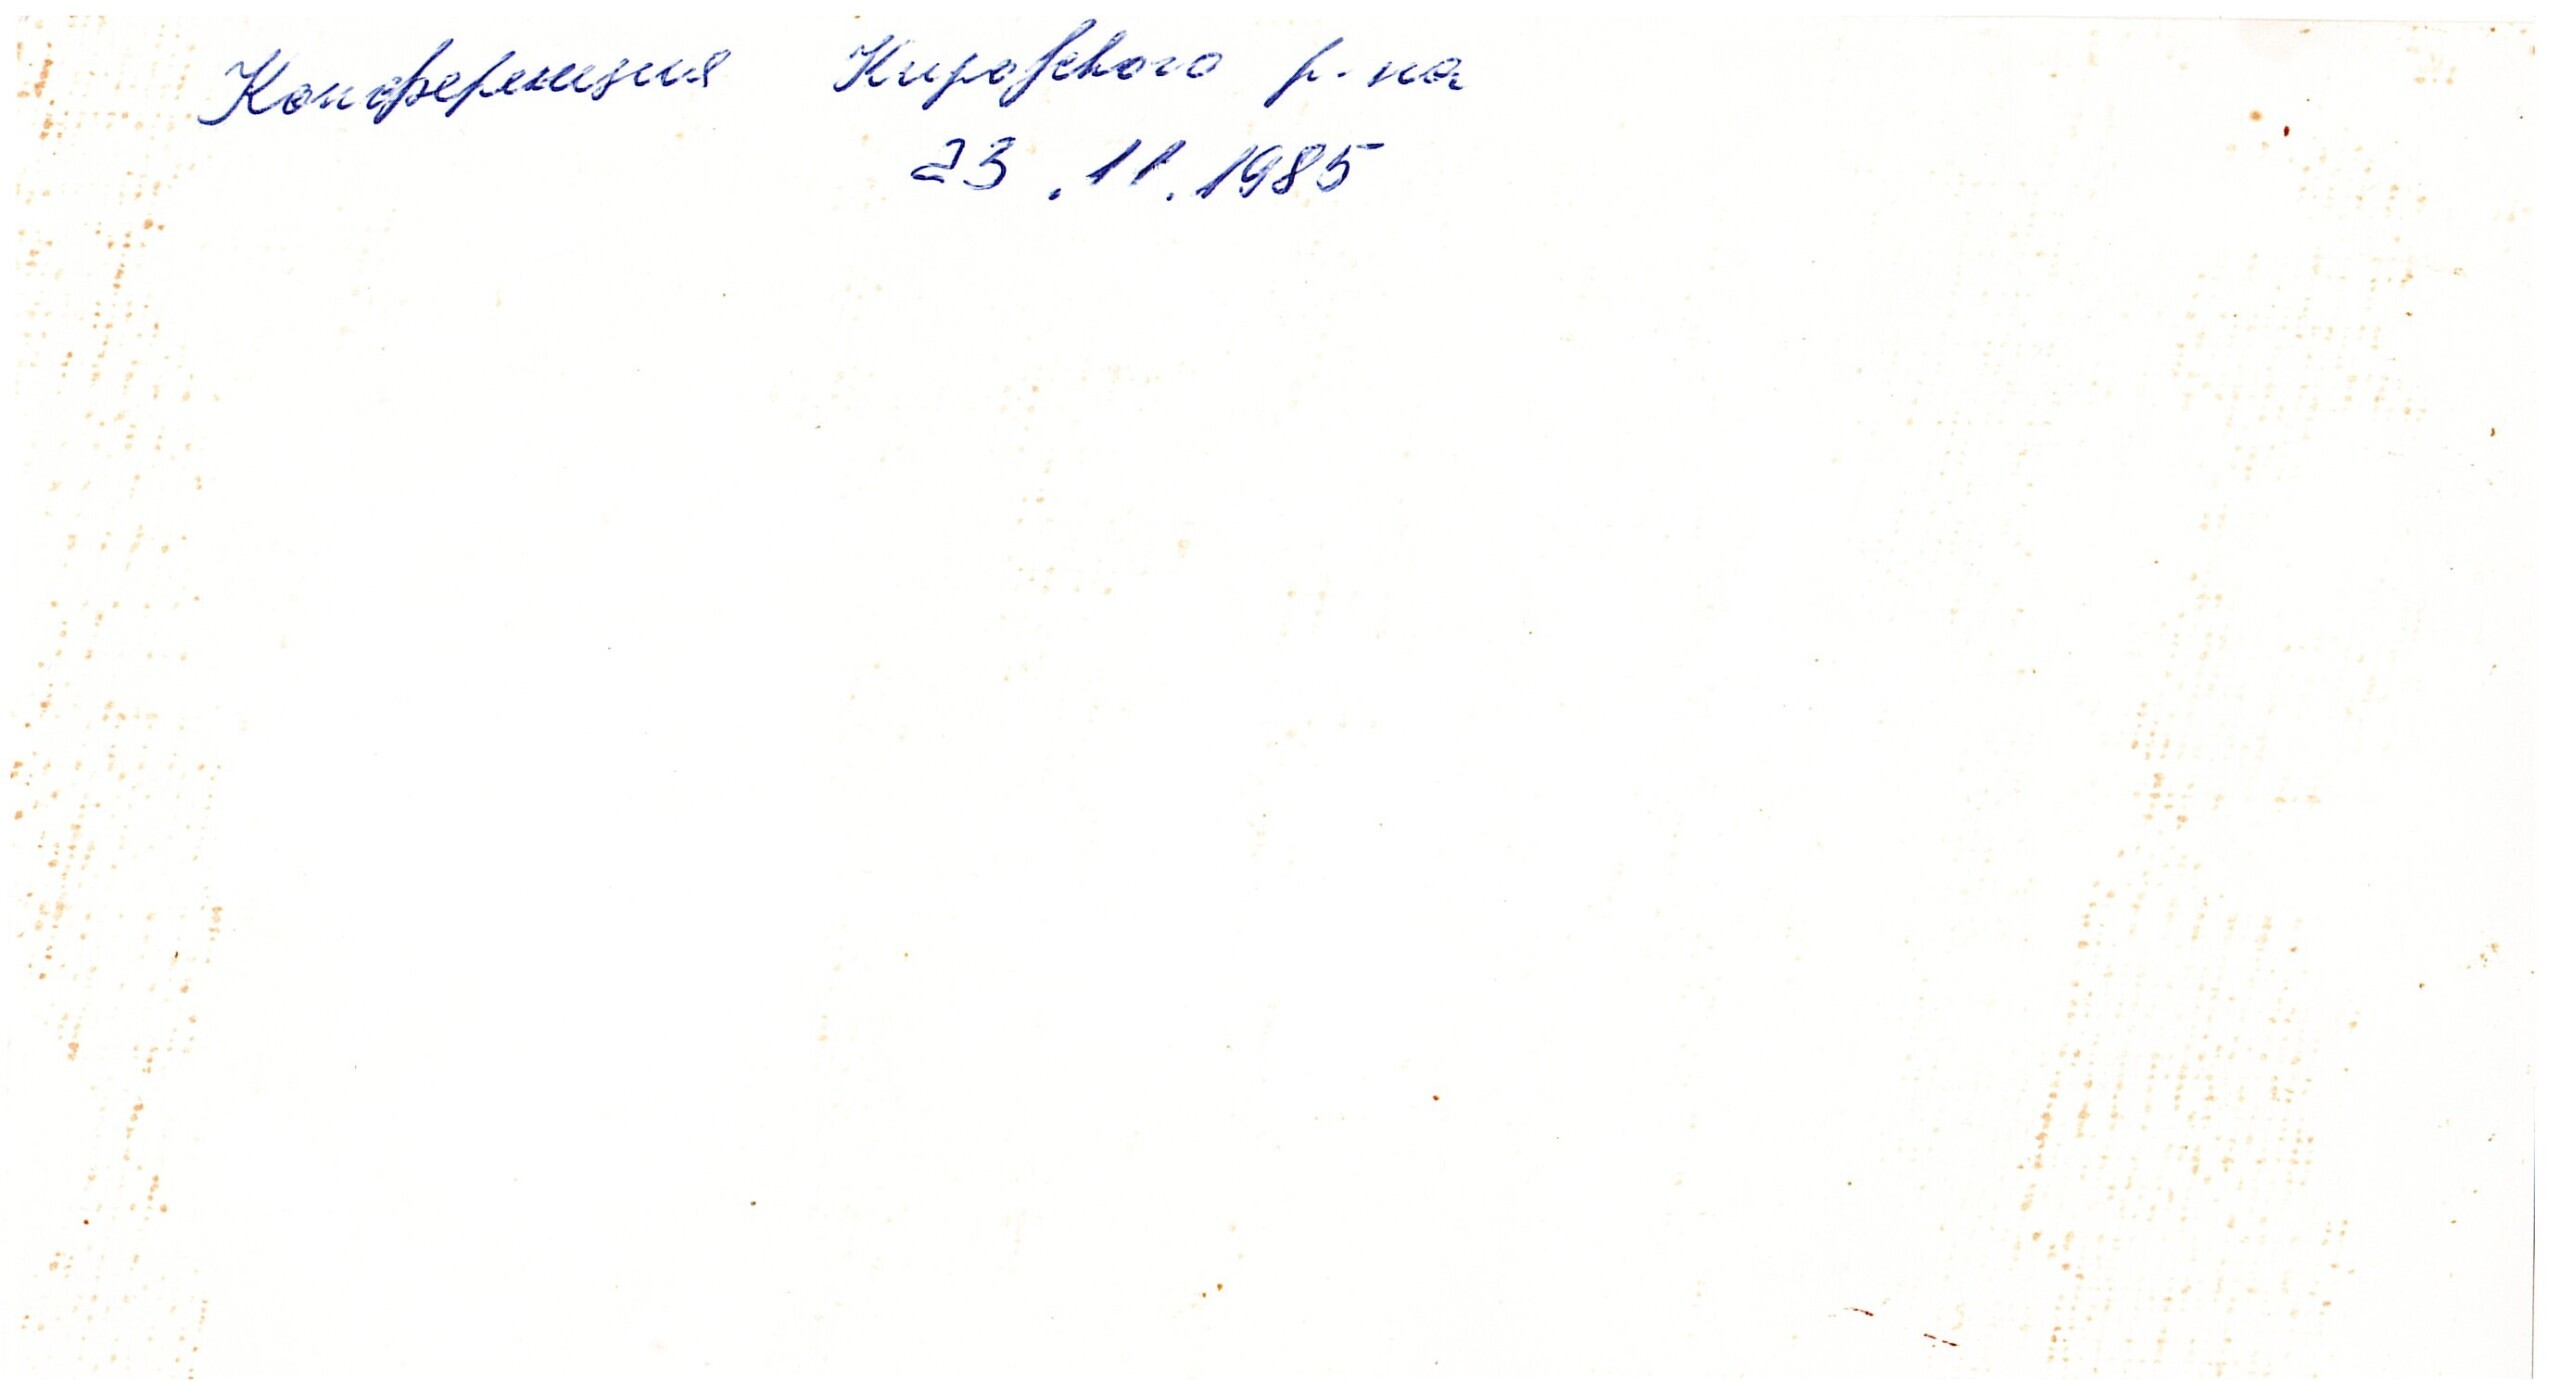 Конференция Кировского р-на
23.11.1985